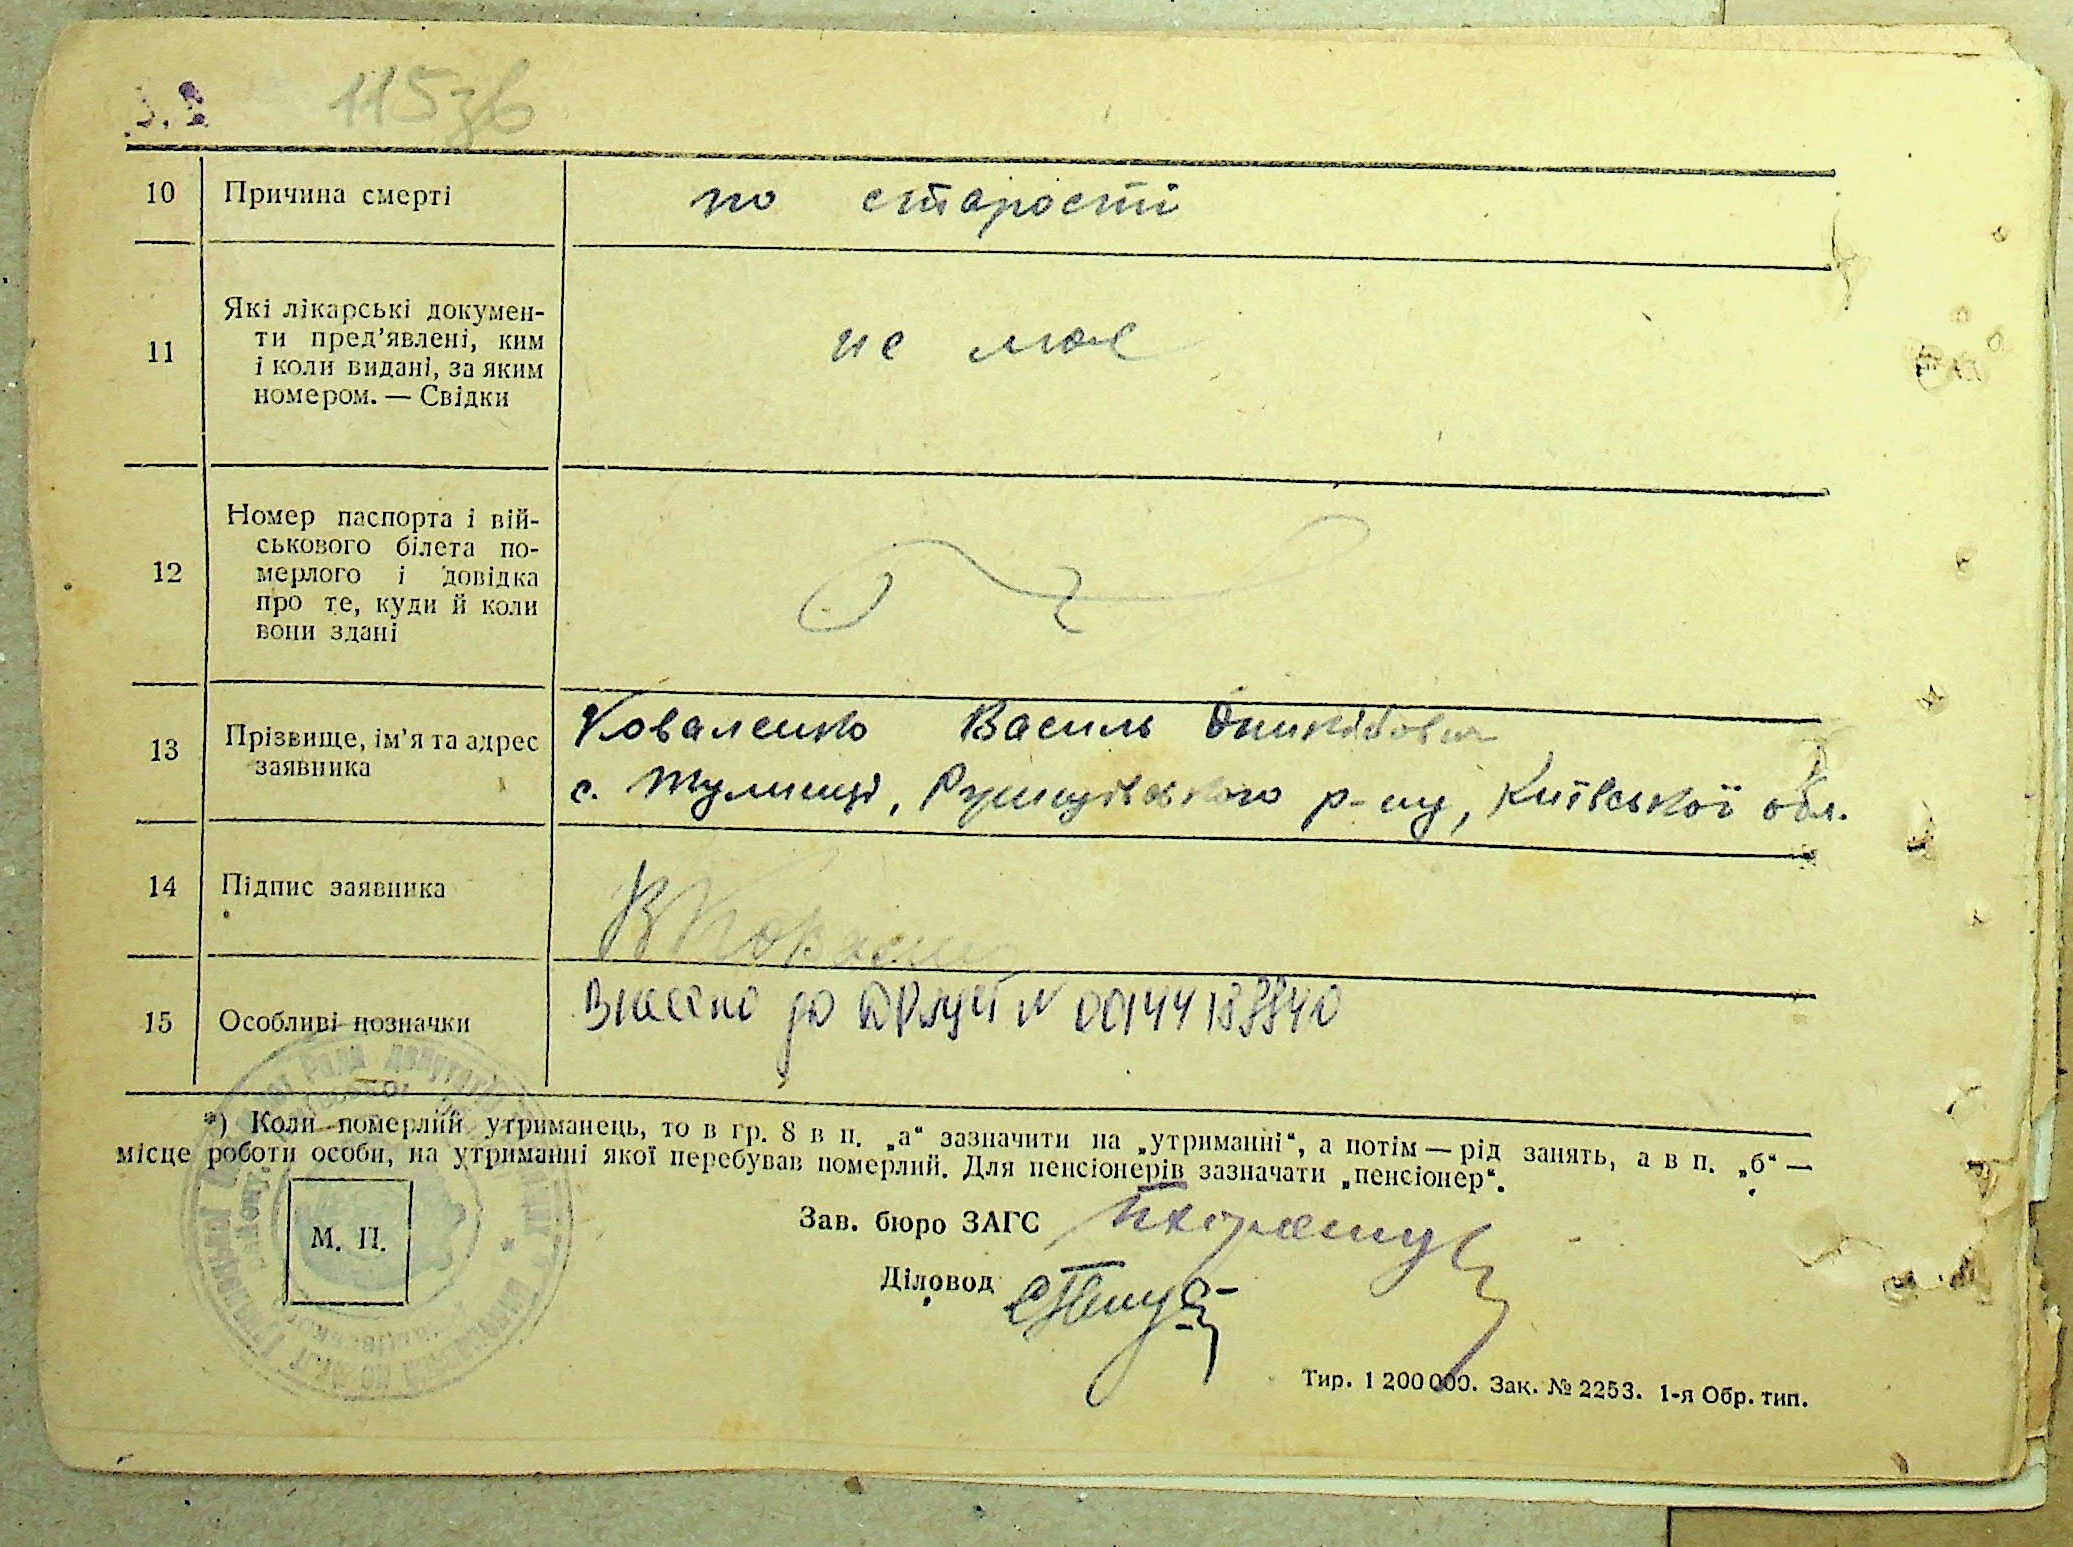 115зв
10 Причина смерті по старості
11 Які лікарські докумен-
ти пред'явлені, ким
і коли видані, за яким
номером. — Свідки
не має
12 Номер паспорта і вій-
ськового білета по-
мерлого і довідка
про те, куди й коли
вони здані
13 Прізвище, ім'я та адрес
заявника
Коваленко Василь
с. Тулинці, р-ну, Київської обл.
14 Підпис заявника
15 Особливі позначки
Внесено до №
*) Коли померлий утриманець, то в гр. 8 в п. „а“ зазначити на „утриманні“, а потім — рід занять, а в п. „б“ —
місце роботи особи, на утриманні якої перебував померлий. Для пенсіонерів зазначати „пенсіонер“.
М. П.
Зав. бюро ЗАГС
Діловод
Тир. 1 200 000. Зак. № 2253. 1-я Обр. тип.